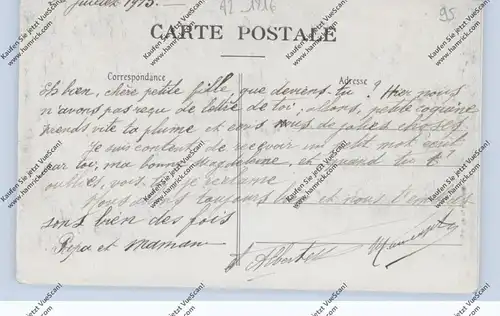 Juillet 1915. -
A2 1216
95
CARTE POSTALE
Correspondance
Adresse
Eh bien, chère petite fille, que deviens tu ? Hier nous
n'avons pas reçu de lettre de toi, allons, petite coquine
prends vite ta plume et écris nous de jolies choses
Je suis contente de recevoir un petit mot écrit
par toi, ma bonne Magdeleine, et quand tu
oublies, vois tu je réclame
Nous toujours bien et nous t'embras
sons bien des fois
Papa et maman
Albertes
Kaufen Sie jetzt VueScan!
www.hamrick.com
Buy VueScan!